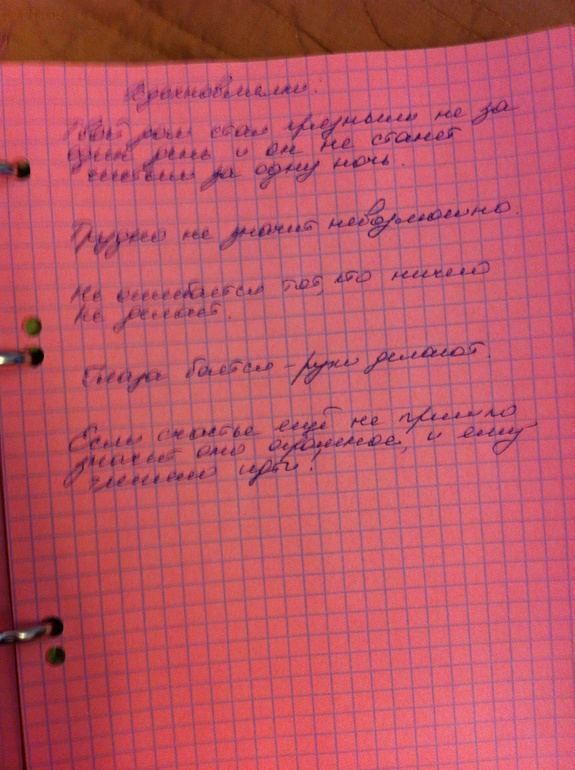 Вдохновлялки:
Твой дом стал грязным не за
один день и он не станет
чистым за одну ночь.
Трудно не значит невозможно.
Не ошибается тот, кто ничего
не делает.
Глаза боятся - руки делают.
Если счастье ещё не пришло
значит оно огромное, и ему
тяжело идти!